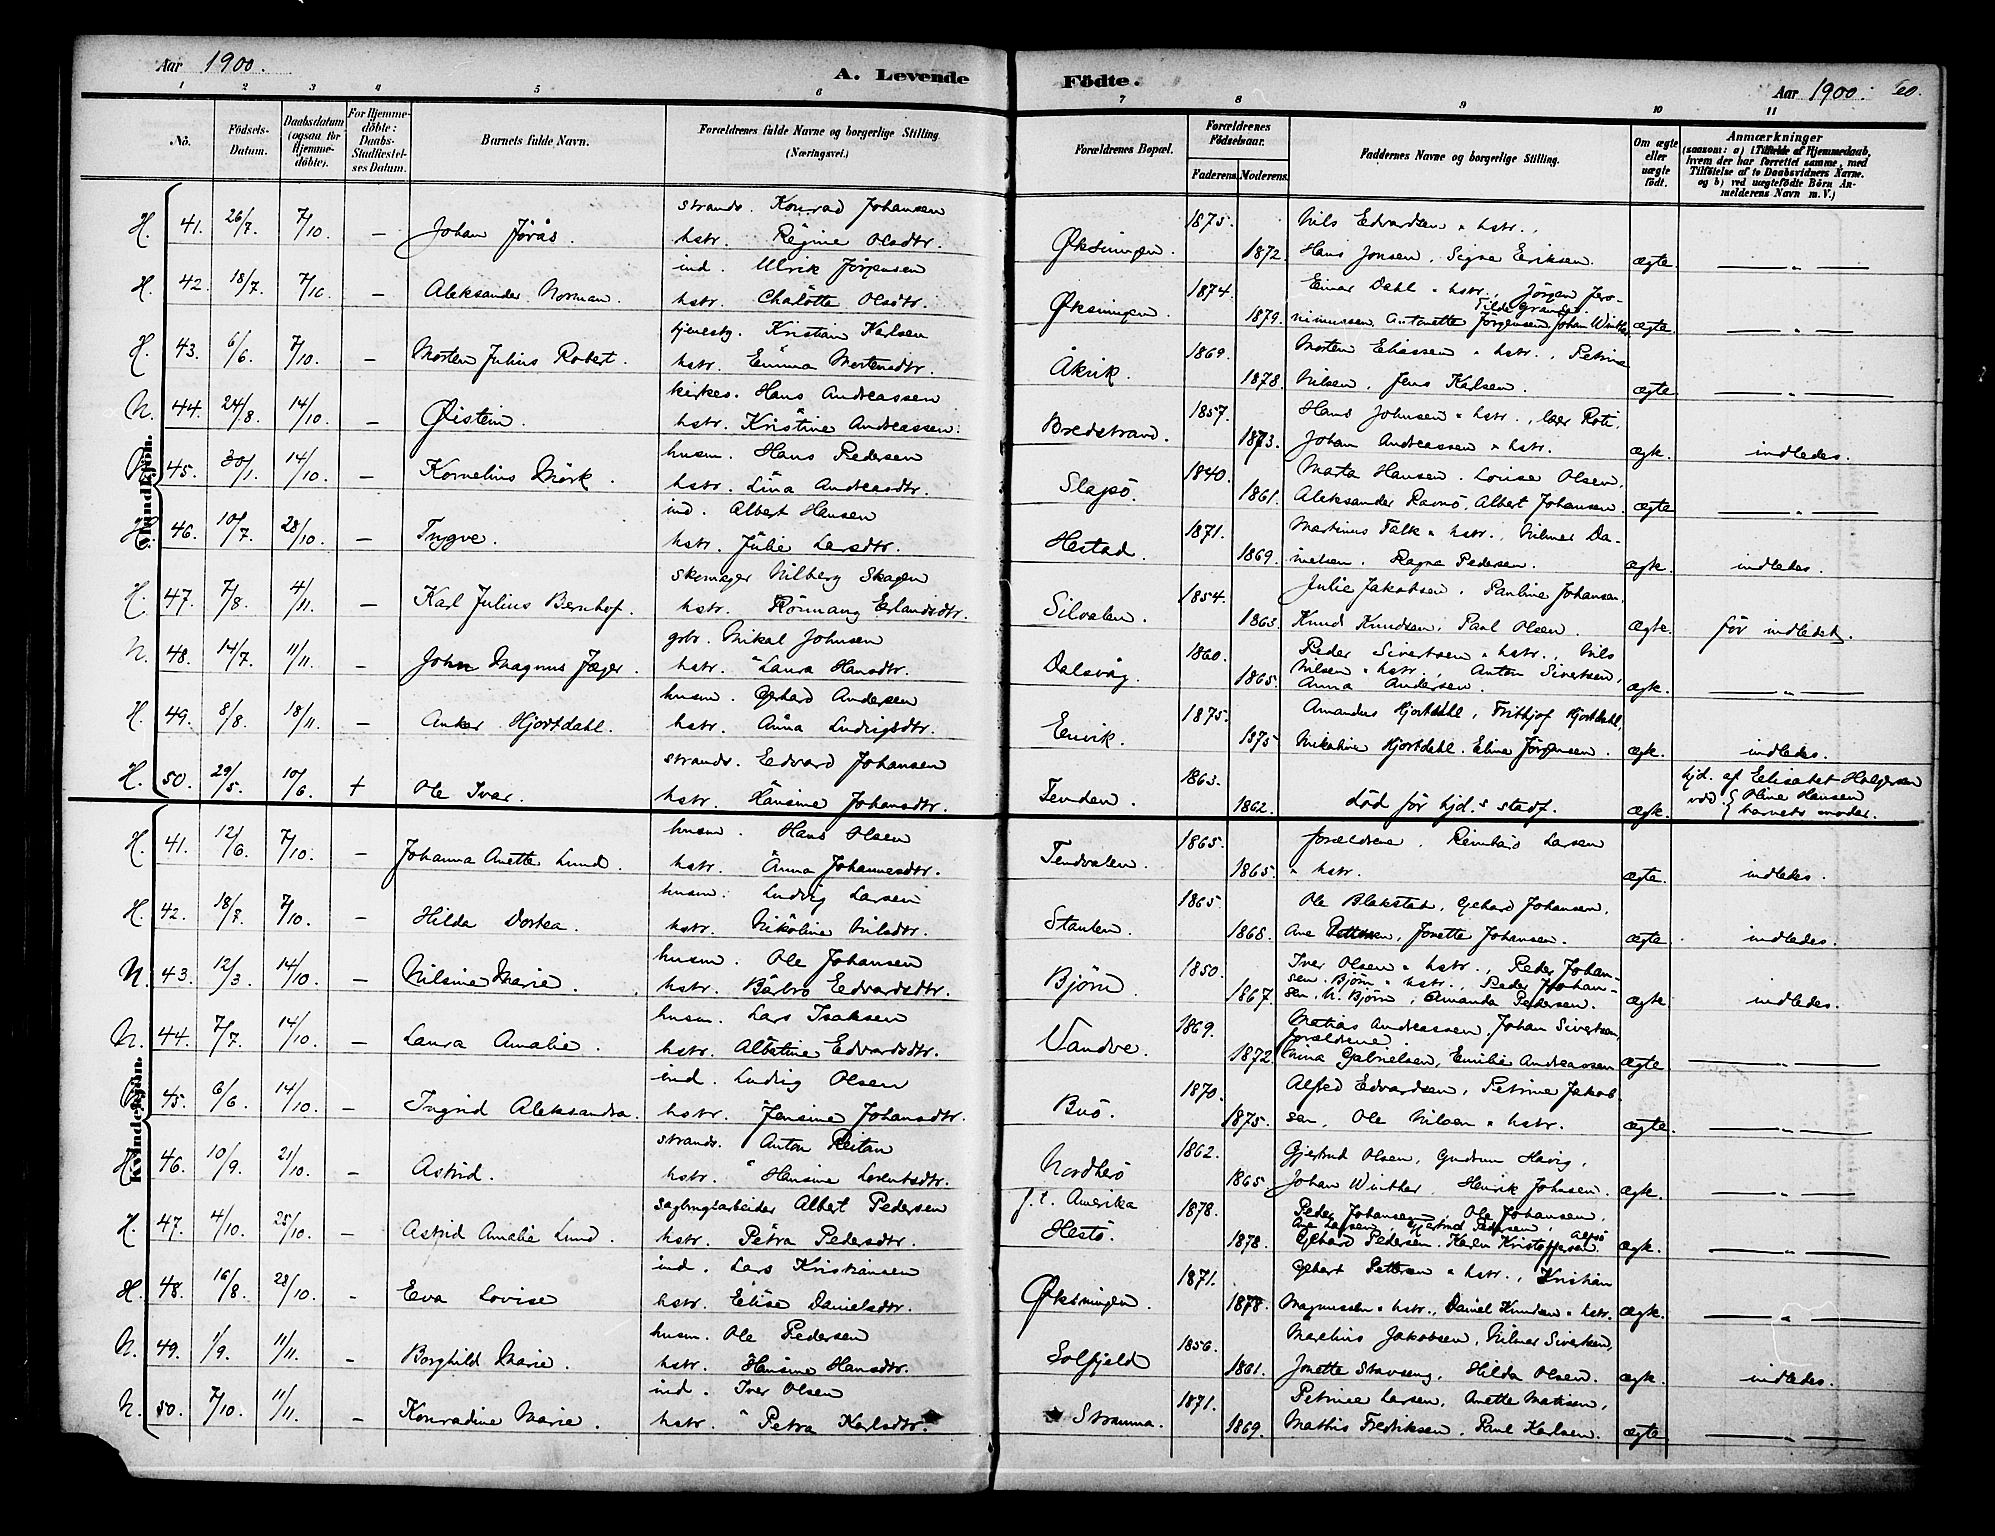 Aar 1900. A. Levende Födte. Aar 1900. 60.
1 2 3 4 5 6 7 8 9 10 11
No. Födsels-Datum. Daabsdatum (ogsaa for Hjemmedöbte). For Hjemmedöbte: Daabs-Stadfæstelses Datum. Barnets fulde Navn. Forældrenes fulde Navne og borgerlige Stilling. (Næringsvei.) Forældrenes Bopæl. Forældrenes Födselsaar. Faderens. Moderens. Faddernes Navne og borgerlige Stilling. Om ægte eller uægte födt. Anmærkninger (saasom: a) i Tilfælde af Hjemmedaab, hvem der har forrettet samme, med Tilföielse af to Daabsvidners Navne. og b) ved uægtefödte Börn Anmelderens Navn m. V.)
Mandkjön.
H. 41. 26/7. 7/10. — Johan Jörås. strands. Konrad Johansen
hstr. Regine Olsdtr. Øksningen. 1875. 1872. Nils Edvardsen " hstr.,
Hans Jonsen, Signe Eriksen. ægte. — " —
H. 42. 18/7. 7/10. — Aleksander Norman. ind. Ulrik Jörgensen
hstr. Charlotte Olsdtr. Øksningen. 1874. 1879. Einar Dahl " hstr., Jörgen Jero-
nimussen, Antonette Jörgensen, Johan Winther ægte. — " —
H. 43. 6/6. 7/10. — Morten Julius Robert. tjenestg. Kristian Karlsen
hstr. Emma Mortensdtr. Åkvik. 1869. 1878. Morten Eliassen " hstr., Petrine
Nilsen, Jens Karlsen. ægte — " —
N. 44. 24/8. 14/10. — Øistein. kirkes. Hans Andreassen
hstr. Kristine Andreassen. Bredstrand. 1857. 1873. Hans Johnsen " hstr.,
Johan Andreassen " hstr. ægt. indledes.
45. 30/1. 14/10. — Kornelius Mörk. husm. Hans Pedersen
hstr. Lina Andreasdtr. Slapsö. 1840. 1861. Marta Hansen, Louise Olsen,
Aleksander Ravnö, Albert Johansen. ægte — " —
H. 46. 10/7. 28/10. — Trygve. ind. Albert Hansen
hstr. Julie Larsdtr. Hestad. 1871. 1869. Martinus Falk " hstr., Hilmer Da-
nielsen, Ragna Pedersen. ægt. indledes.
H. 47. 7/8. 4/11. — Karl Julius Bernhof. skomager Nilberg Skagen
hstr. Rönnaug Erlandsdtr. Silvalen. 1854. 1863. Julie Jakobsen, Pauline Johansen,
Knud Knudsen, Paul Olsen. ægte. för indledet.
N. 48. 14/7. 11/11. — John Magnus Jæger. gbr. Mikal Johnsen
hstr. Laura Hansdtr. Dalsvåg. 1860. 1865. Peder Sivertsen " hstr., Nils
Nilsen " hstr., Anton Sivertsen,
Anna Andersen. ægt. — " —
H. 49. 8/8. 18/11. — Anker Hjortdahl. husm. Gerhard Andersen
hstr. Anna Ludvigsdtr. Envik. 1875. 1875 Amandus Hjortdahl, Frithjof Hjortdahl,
Nikoline Hjortdahl, Eline Jörgensen. ægt. indledes.
H. 50. 29/5. 10/6. + Ole Ivar. strands. Edvard Johansen
hstr. Hansine Johansdtr. Tenden. 1863. 1862. död för hjd.s stadf. ægt. hjd. af Elisabet Holgersen
vdd. { Oline Hansen
barnets moder.
Kvindekjön.
H. 41. 12/6. 7/10. — Johanna Anette Lund. husm. Hans Olsen
hstr. Anna Johannesdtr. Tendvalen. 1865. 1865. forældrene, Reinhard Larsen
" hstr. ægte. indledes.
H. 42. 18/7. 7/10. — Hilda Dortea. husm. Ludvig Larsen
hstr. Nikoline Nilsdtr. Staulen. 1865. 1868. Ole Blakstad, Gerhard Johansen,
Ane Pettersen, Jonette Johansen. ægte. indledes.
N. 43. 12/3. 14/10. — Nilsine Marie. husm. Ole Johansen
hstr. Barbro Edvardsdtr. Björn. 1850. 1867. Iver Olsen " hstr., Peder Johan-
sen, Björn " hstr., Peder Johan-
sen, N. Björn, Amanda Pedersen. ægt. indledes.
N. 44. 7/7. 14/10. — Laura Amalie. husm. Lars Isaksen
hstr. Albertine Edvardsdtr. Vandve. 1869. 1872. Matias Andreassen, Johan Sivertsen,
forældrene,
Nina Gabrielsen, Emilie Andreassen ægte — " —
45. 6/6. 14/10. — Ingrid Aleksandra. ind. Ludvig Olsen
hstr. Jensine Johansdtr. Buö. 1870. 1875. Alfred Edvardsen, Petrine Jakob-
sen, Ole Nilsen " hstr. ægte. — " —
H. 46. 10/9. 21/10. — Astrid. strands. Anton Reitan
hstr. Hansine Lorentsdtr. Nordhersö 1862. 1865 Gjertrud Olsen, Gudrun Havig,
Johan Winther, Henrik Johnsen. ægt. — " —
H. 47. 4/10. 25/10. — Astrid Amalie Lund. sagbrugsarbeider Albert Pedersen
hstr. Petra Pedersdtr. f.t. Amerika
Hestö. 1878. 1878. Peder Johansen, Ole Johansen,
Ane Larsen, Gjertrud Pedersen,
Gerhard Pedersen, Karen Kristoffersen. ægt. — " —
H. 48. 16/8. 28/10. - Eva Lovise ind. Lars Kristiansen
hstr. Elise Danielsdtr. Øksningen. 1871. 1878. Gerhart Pettersen " hstr., Kristian
Magnussen " hstr., Daniel Knudsen " hstr. ægt. — " —
N. 49. 1/9. 11/11. — Borghild Marie. husm. Ole Pedersen
hstr. Hansine Hansdtr. Solfjeld 1856. 1861. Marelius Jakobsen, Hilmar Sivertsen,
Jonette Stavseng, Hilda Olsen. ægt. indledes.
N. 50. 7/10. 11/11. — Konradine Marie. ind. Iver Olsen
hstr. Petra Karlsdtr. Stramma. 1871. 1869. Petrine Larsen, Anette Matisen,
Mathis Fredriksen, Paul Karlsen. ægte — " —